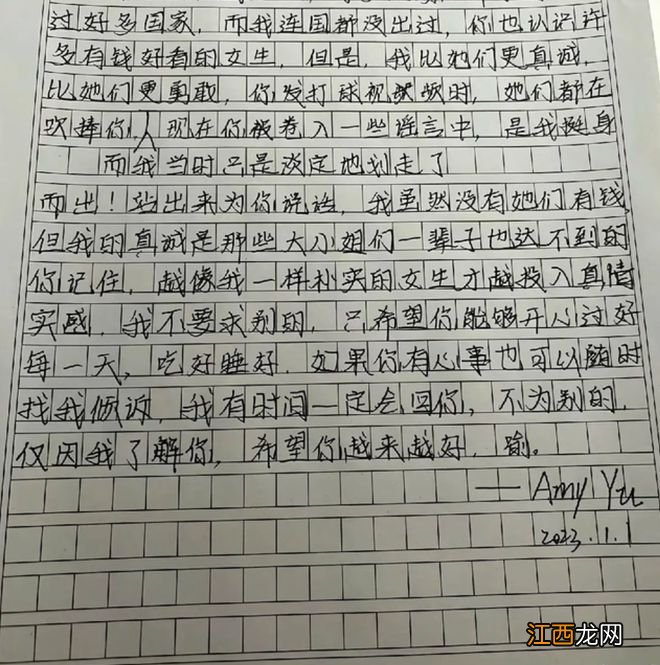 过好多国家，而我连国都没出过，你也认识许
多有钱好看的女生，但是，我比她们更真诚，
比她们更勇敢，你发打球视频时，她们都在
吹捧你，人现在你被卷入一些谣言中，是我挺身
而我当时只是淡定地划走了
而出！站出来为你说话，我虽然没有她们有钱，
但我的真诚是那些大小姐们一辈子也达不到的
你记住，越像我一样朴实的女生才越投入真情
实感，我不要求别的，只希望你能够开心过好
每一天，吃好睡好，如果你有心事也可以随时
找我倾诉，我有时间一定会回你，不为别的，
仅因我了解你，希望你越来越好，喻。
——Amy Yu
2023.1.1
江西龙网